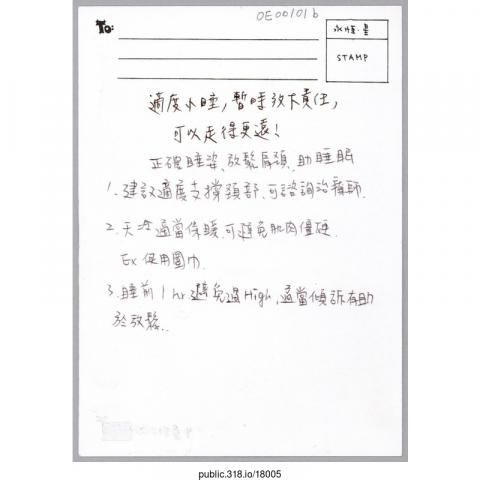 OE00101b
To:
永恆.星
STAMP
適度小睡,暫時放下責任,
可以走得更遠!
正確睡姿、放鬆肩頸、助睡眠
1. 建議適度支撐頸部、可諮詢治療師.
2. 天冷適當保暖,可避免肌肉僵硬.
Ex 使用圍巾.
3. 睡前 1 hr 避免過High,適當傾訴有助
於放鬆.
public.318.io/18005